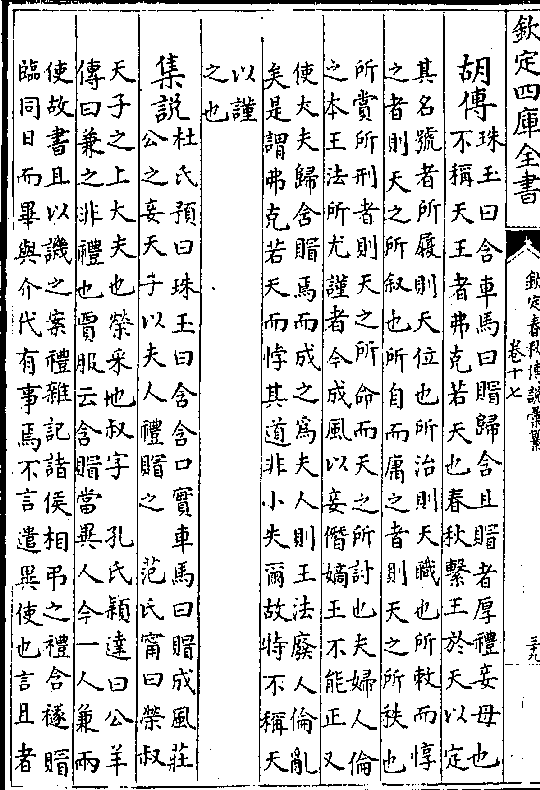 欽定四庫全書
欽定春秋傳說彙纂
卷十七
三九
胡傳
珠玉曰含車馬曰賵歸含且賵者厚禮妾母也
不稱天王者弗克若天也春秋繫王於天以定
其名號者所履則天位也所治則天職也所敕而惇
之者則天之所叙也所自而庸之者則天之所秩也
所賞所刑者則天之所命而天之所討也夫婦人倫
之本王法所尤謹者今成風以妾僭嫡王不能正又
使大夫歸含賵焉而成之為夫人則王法廢人倫亂
矣是謂弗克若天而悖其道非小失爾故特不稱天
以謹
之也
集説
杜氏預曰珠玉曰含含口實車馬曰賵成風莊
公之妾天子以夫人禮賵之 范氏甯曰榮叔
天子之上大夫也榮采地叔字 孔氏穎達曰公羊
傳曰兼之非禮也賈服云含賵當異人今一人兼兩
使故書且以譏之案禮雜記諸侯相弔之禮含襚賵
臨同日而畢與介代有事焉不言遣異使也言且者